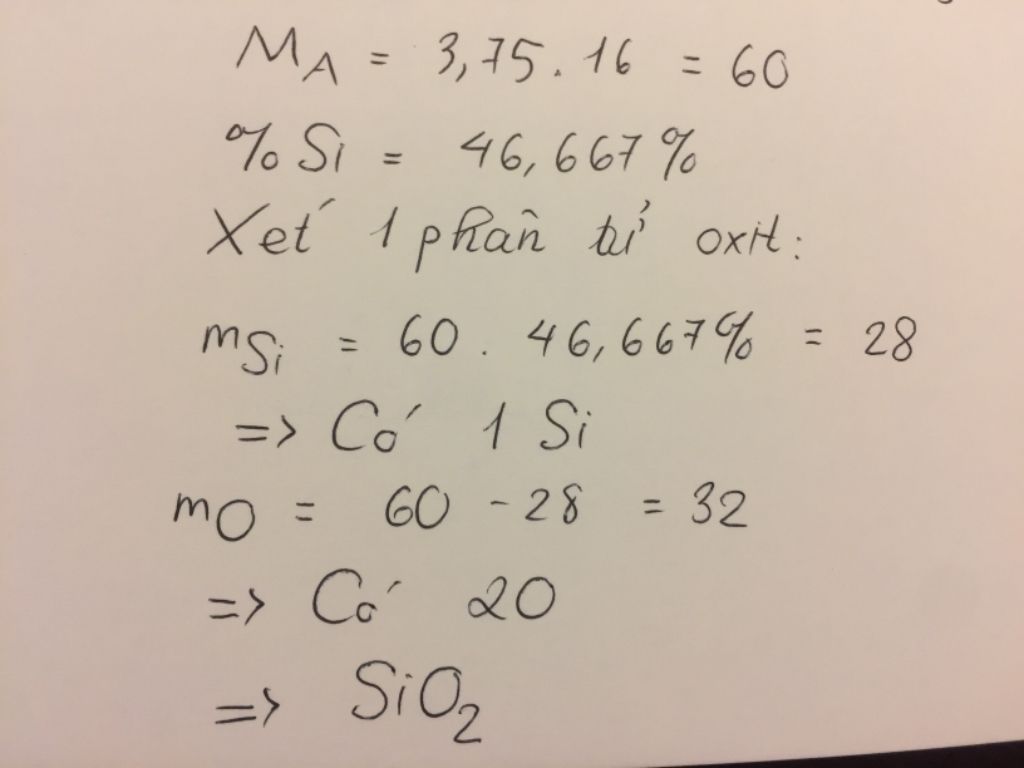 MA = 3,75 . 16 = 60
% Si = 46,667 %
Xét 1 phân tử oxit :
mSi = 60 . 46,667% = 28
=> Có 1 Si
mO = 60 - 28 = 32
=> Có 2O
=> SiO2